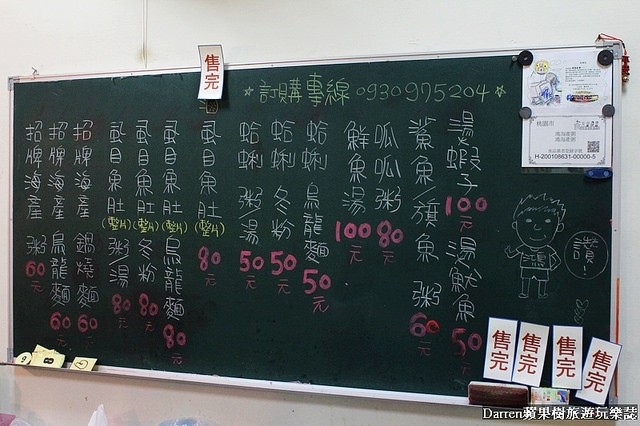 售完
☆訂購專線 0930975204☆
湯蝦子100元
湯魷魚50元
鯊魚/旗魚 粥60元
呱呱粥80元
鮮魚湯100元
蛤蜊 烏龍麵50元
蛤蜊 冬粉50元
蛤蜊 粥/湯50元
虱目魚肚(整片)80元
虱目魚肚(整片)烏龍麵80元
虱目魚肚(整片)冬粉80元
虱目魚肚(整片)粥/湯80元
招牌海產 鍋燒麵60元
招牌海產 烏龍麵60元
招牌海產 粥60元
讚!
桃園市
H-200108631-00000-5
售完
售完
售完
售完
Darren蘋果樹旅遊玩樂誌